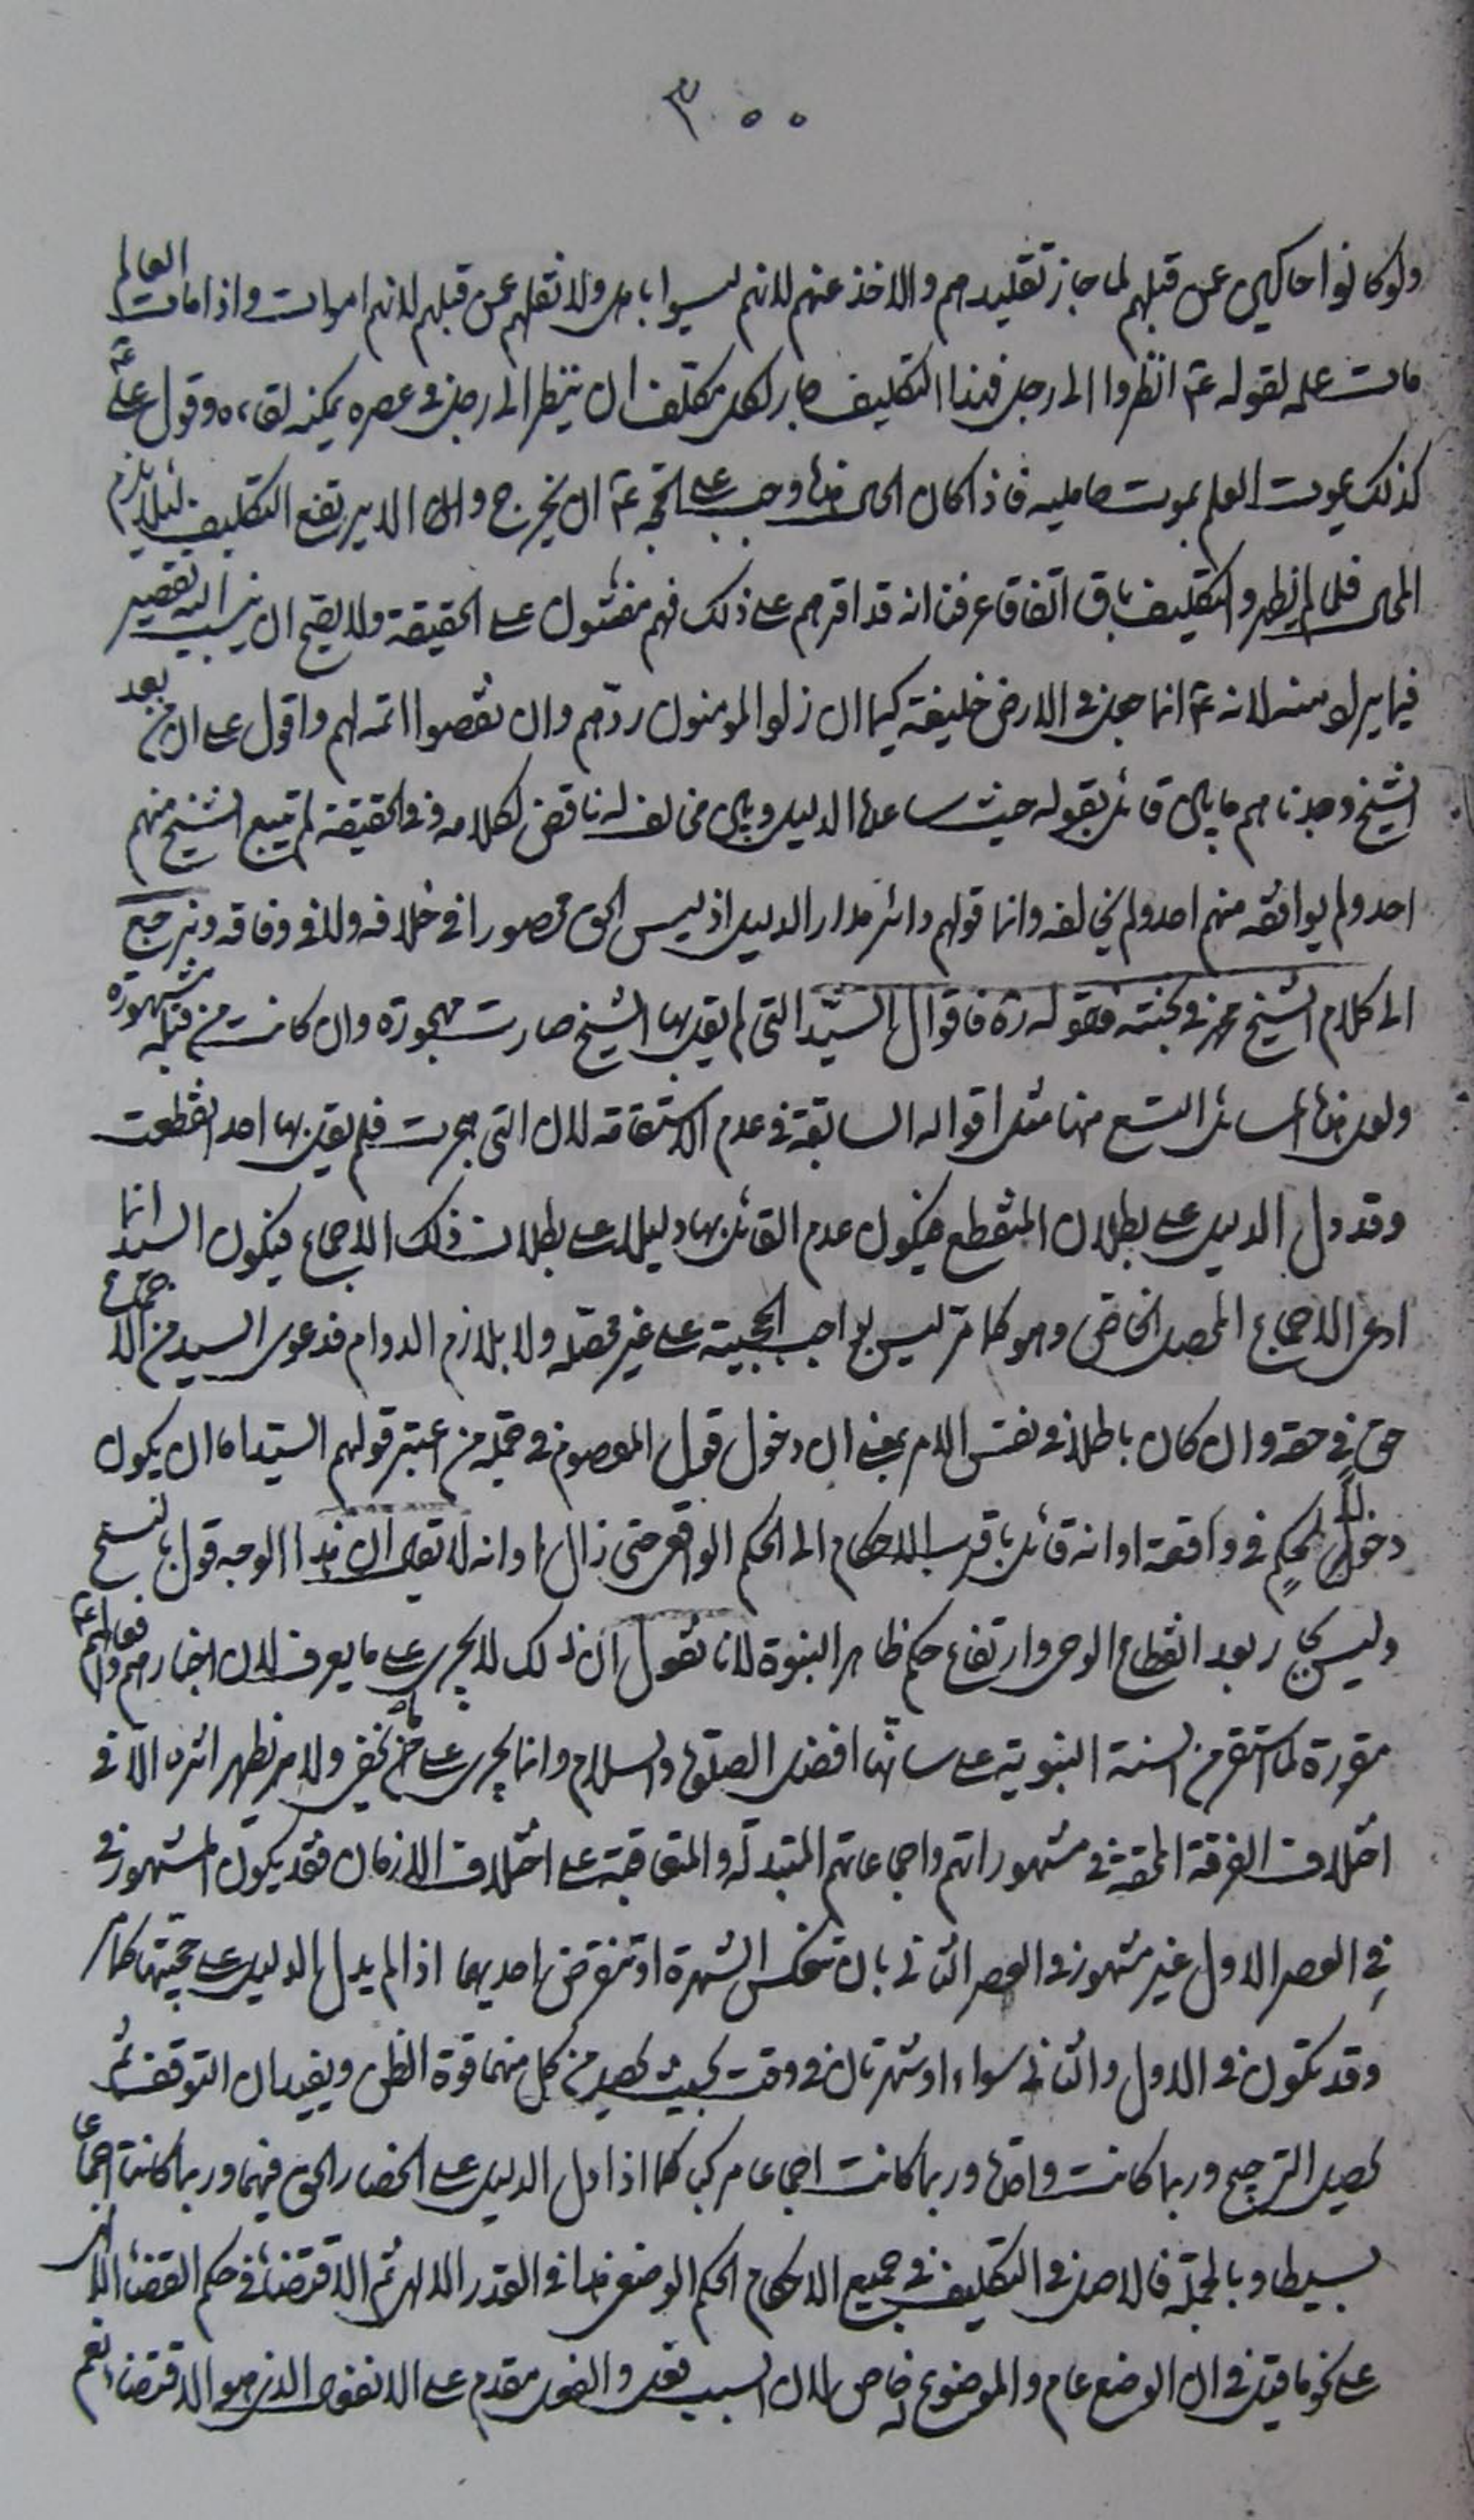 ٣٠٠
ولو كانوا حاكين عن قبلهم لما جاز تقليدهم والاخذ عنهم لانهم ليسوا باهل ولا نقلهم عن قبلهم لانهم اموات واذا مات العالم
مات علمه لقوله عم انظروا الى رجل فهذا التكليف صار لكل مكلف ان ينظر الى رجل في عصره يمكنه لقاءه وقول علي عم
كذلك يموت العلم بموت حامليه فاذا كان الحال هذا وجب على الحجة عم ان يخرج وان الا يرتفع التكليف لئلا يلزم
المحال فلما لم يظهر والتكليف باق اتفاقا عرفنا انه قد اقرهم على ذلك فهم مفتون على الحقيقة ولا يصح ان ينسب اليه تقصير
فيما يراد منه لانه عم انما جعل في الارض خليفة كيما ان زاد المؤمنون ردهم وان نقصوا اتمه لهم واقول على ان من بعد
الشيخ وجدناهم ما بين قائل بقوله حيث ساعد الدليل وبين مخالف له ناقض لكلامه وفي الحقيقة لم يتبع الشيخ منهم
احد ولم يوافقه منهم احد ولم يخالفه وانما قولهم دائر مدار الدليل اذ ليس الحق محصورا في خلافه ولا في وفاقه ونرجع
الى كلام الشيخ محمد في كتبته فقوله ره فاقوال السيد التي لم يقل بها الشيخ صارت مهجورة وان كانت من قبله مشهورة
ولعل هذا المسائل التسع منها مثل اقواله السابقة في عدم الاستقامة لان التي هجرت فلم يقل بها احد انقطعت
وقد دل الدليل على بطلان المنقطع فيكون عدم القائل بها دليلا على بطلان ذلك الاجماع فيكون السيد انما
ادعى الاجماع المحصل الخاص وهو كما مر ليس بواجب الحجية على غير محصله ولا بلازم الدوام فدعوى السيد من الاجماع
حق في حقه وان كان باطلا في نفس الامر بمعنى ان دخول قول المعصوم في جملة من اعتبر قولهم السيد اما ان يكون
دخولا لحكم في واقعة او انه قائل باقرب الاحكام الى الحكم الواقعي حتى زال او انه لا يقال ان هذا الوجه قول بالنسخ
وليس بجار بعد انقطاع الوحي وارتفاع حكم ظاهر النبوة لانا نقول ان ذلك لا يجري على ما يعرف لان اخبارهم وافعالهم عم
مقررة لما استقر من السنة النبوية على سانها افضل الصلوة والسلام وانما يجري على نحو خفي ولا من يظهر اثره الا في
اختلاف الفرقة المحقة في مشهوراتهم واجماعاتهم المتبدلة والمتعاقبة على اختلاف الازمان فقد يكون المشهور في
في العصر الاول غير مشهور في العصر الثاني بان تنعكس الشهرة او تنقرض احديهما اذا لم يدل الدليل على حجيتها كما مر
وقد تكون في الاول والثاني سواء او شهرتان في وقت بحيث يحصل من كل منهما قوة الظن ويفيدان التوقف ثم
يحصل الترجيح وربما كانت واحدة وربما كانت اجماعا مركبا كما اذا دل الدليل على انحصار الحق فيهما وربما كانت اجماعا
بسيطا وبالجملة فالاصل في التكليف في جميع الاحكام الحكم الوضعي هذا في القدر الالهي ثم الاقتضائي في حكم القضاء الالهي
على نحو ما قيل في ان الوضع عام والموضوع له خاص لان السبب فعل والفعل مقدم على الانفعال الذي هو الاقتضاء نعم